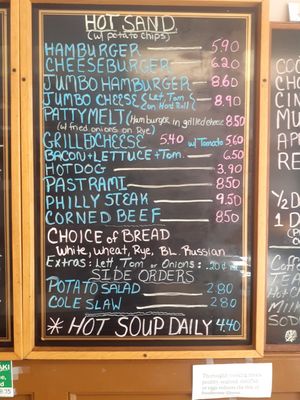 HOT SAND.
(w/ potato chips)
HAMBURGER 5.90
CHEESEBURGER 6.20
JUMBO HAMBURGER 8.60
JUMBO CHEESE (Lett, Tom, on Hard Roll) 8.90
PATTYMELT (Hamburger in grilled cheese 8.50
w/ fried onions on Rye)
GRILLED CHEESE 5.40 w/ Tomato 5.60
BACON+LETTUCE+TOM. 6.50
HOT DOG 3.90
PASTRAMI 8.50
PHILLY STEAK 9.50
CORNED BEEF 8.50
CHOICE of BREAD
White, Wheat, Rye, BL. Russian
Extras: Lett, Tom or Onions: .20¢
SIDE ORDERS
POTATO SALAD 2.80
COLE SLAW 2.80
* HOT SOUP DAILY 4.40